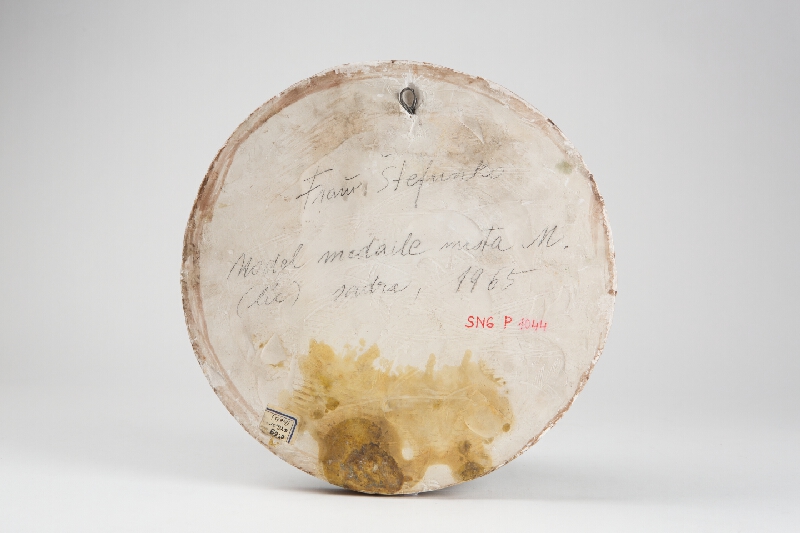 Fraňo Štefunko
Model medaile mesta M.
(líc) sadra, 1965
SNG P 1044